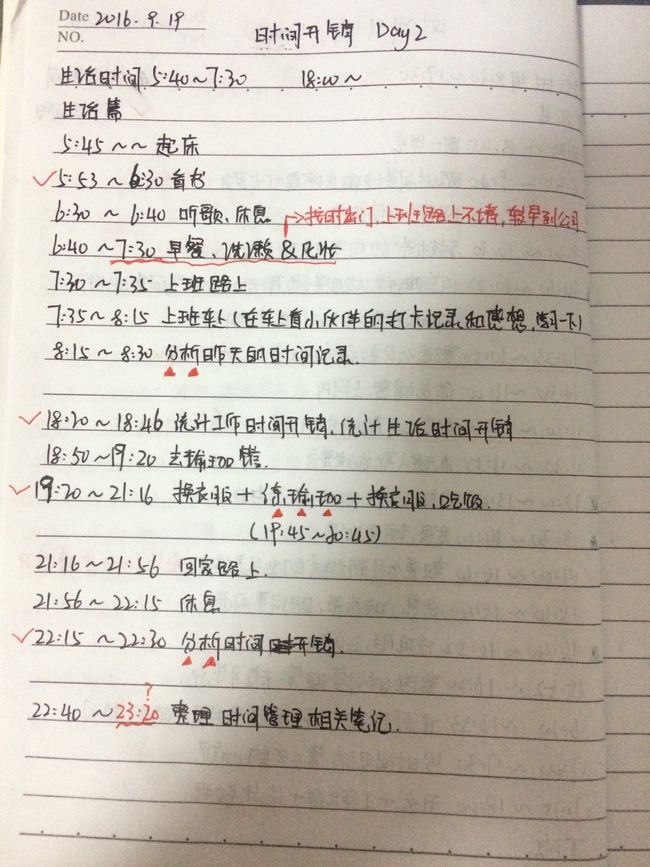 Date 2016.9.19
NO.
时间开销 Day2
生活时间 5:40~7:30 18:00~
生活篇
5:45~~ 起床
5:53~6:30 看书
6:30~6:40 听歌、休息
→按时出门,上班路上不堵,较早到公司
6:40~7:30 早餐、洗漱&化妆
7:30~7:35 上班路上
7:35~8:15 上班车上(在车上看小伙伴的打卡记录和感想,学习一下)
8:15~8:30 分析昨天的时间记录.
18:20~18:46 统计工作时间开销,统计生活时间开销
18:50~19:20 去瑜珈馆.
19:20~21:16 换衣服+练瑜珈+换衣服,吃饭.
(19:45~20:45)
21:16~21:56 回家路上.
21:56~22:15 休息
22:15~22:30 分析时间开销.
?
22:40~23:20 整理时间管理相关笔记.